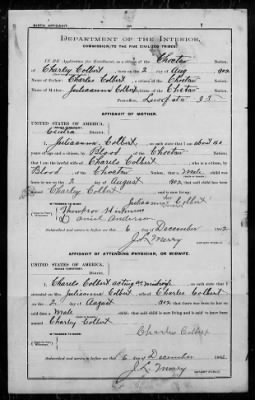 BIRTH AFFIDAVIT.
DEPARTMENT OF THE INTERIOR,
COMMISSION TO THE FIVE CIVILIZED TRIBES.
IN RE Application for Enrollment, as a citizen of the Choctaw Nation,
of Charley Colbert, born on the 2 day of Aug, 1902
Name of Father: Charles Colbert a citizen of the Choctaw Nation.
Name of Mother: Julieann Colbert a citizen of the Choctaw Nation.
Post-office
AFFIDAVIT OF MOTHER.
UNITED STATES OF AMERICA,
INDIAN TERRITORY,
Central District.
I, Julieann Colbert, on oath state that I am about 40
years of age and a citizen, by Blood, of the Choctaw Nation;
that I am the lawful wife of Charles Colbert, who is a citizen, by
Blood of the Choctaw Nation; that a male child was
born to me on the 2 day of August, 1902, that said child has been
named Charley Colbert, and is now living.
Julieann Colbert
Daniel Anderson
Subscribed and sworn to before me this 6 day of December, 1902
NOTARY PUBLIC.
AFFIDAVIT OF ATTENDING PHYSICIAN, OR MIDWIFE.
UNITED STATES OF AMERICA,
INDIAN TERRITORY,
District.
I, Charles Colbert acting as midwife
on Mrs. Julieann Colbert, wife of Charles Colbert
on the 2 day of August, 1902; that there was born to her on
said date a male child; that said child is now living and is said to have been
named Charley Colbert
Charles Colbert
Subscribed and sworn to before me this 6 day of December, 1902.
NOTARY PUBLIC.